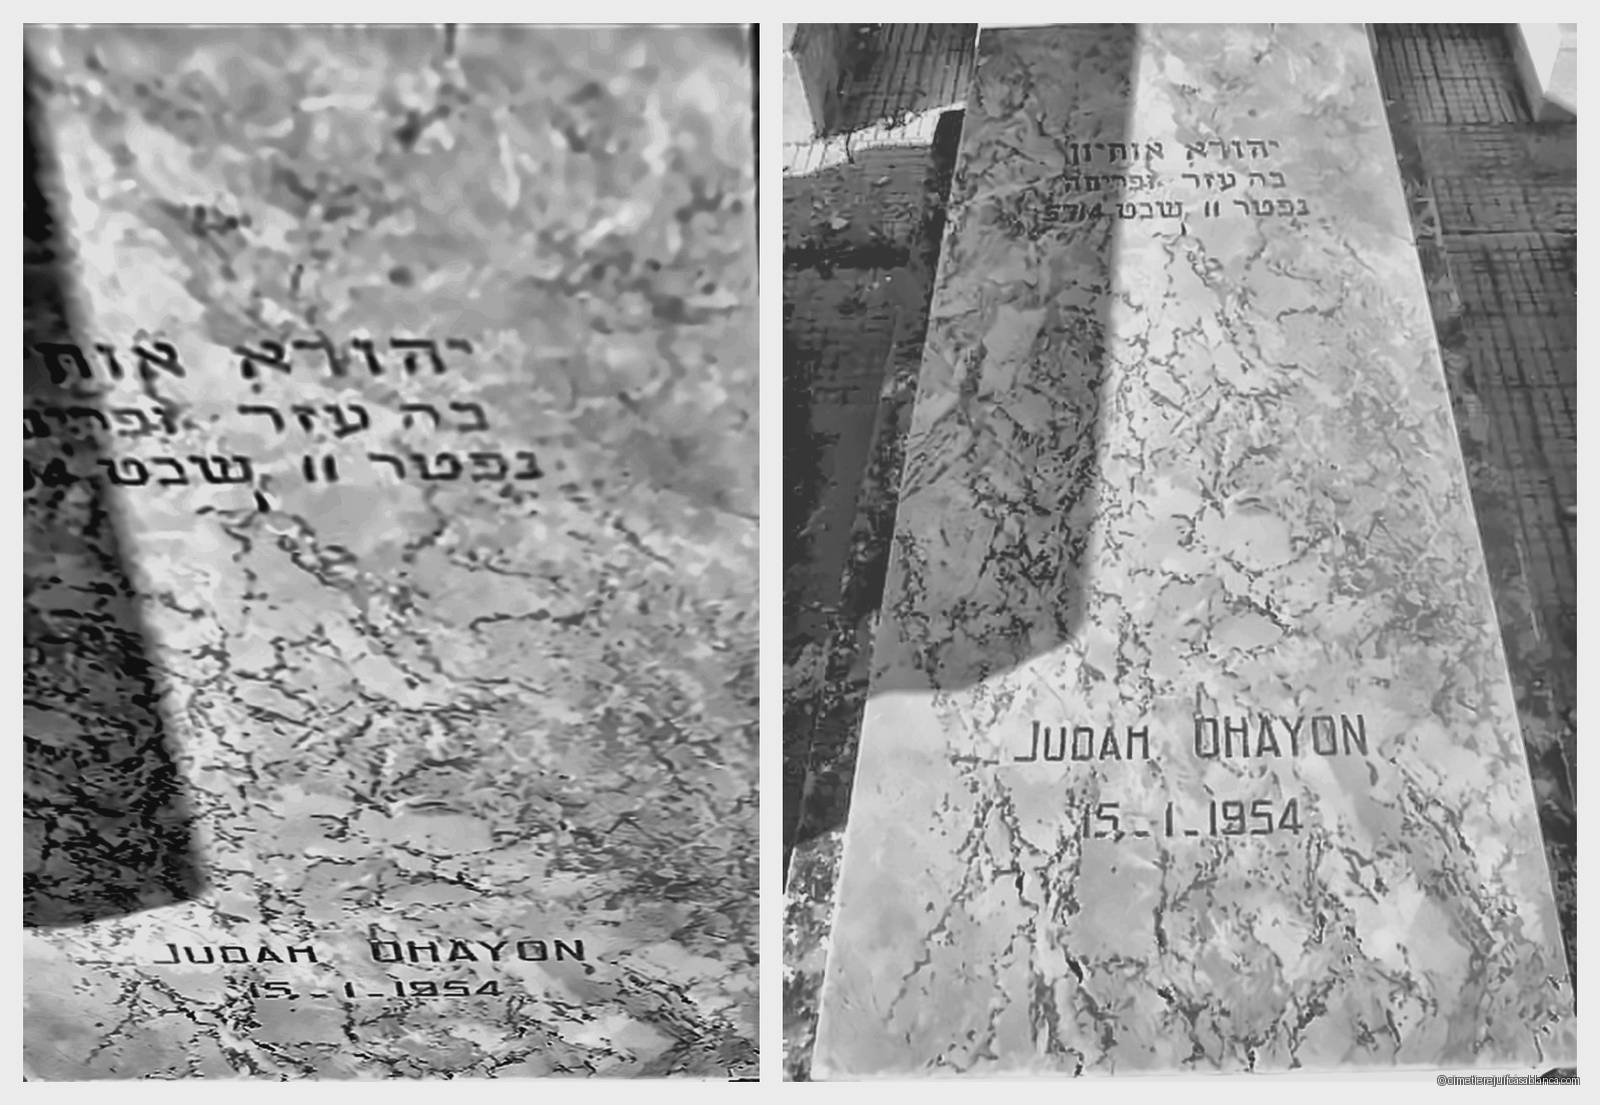 יהודא
בה עזר
נפטר 11 שבט
JUDAH OHAYON
15-1-1954
יהודא אוחיון
בה עזר ופריחה
נפטר 11 שבט 5714
JUDAH OHAYON
15-1-1954
@cimetierejuifcasablanca.com